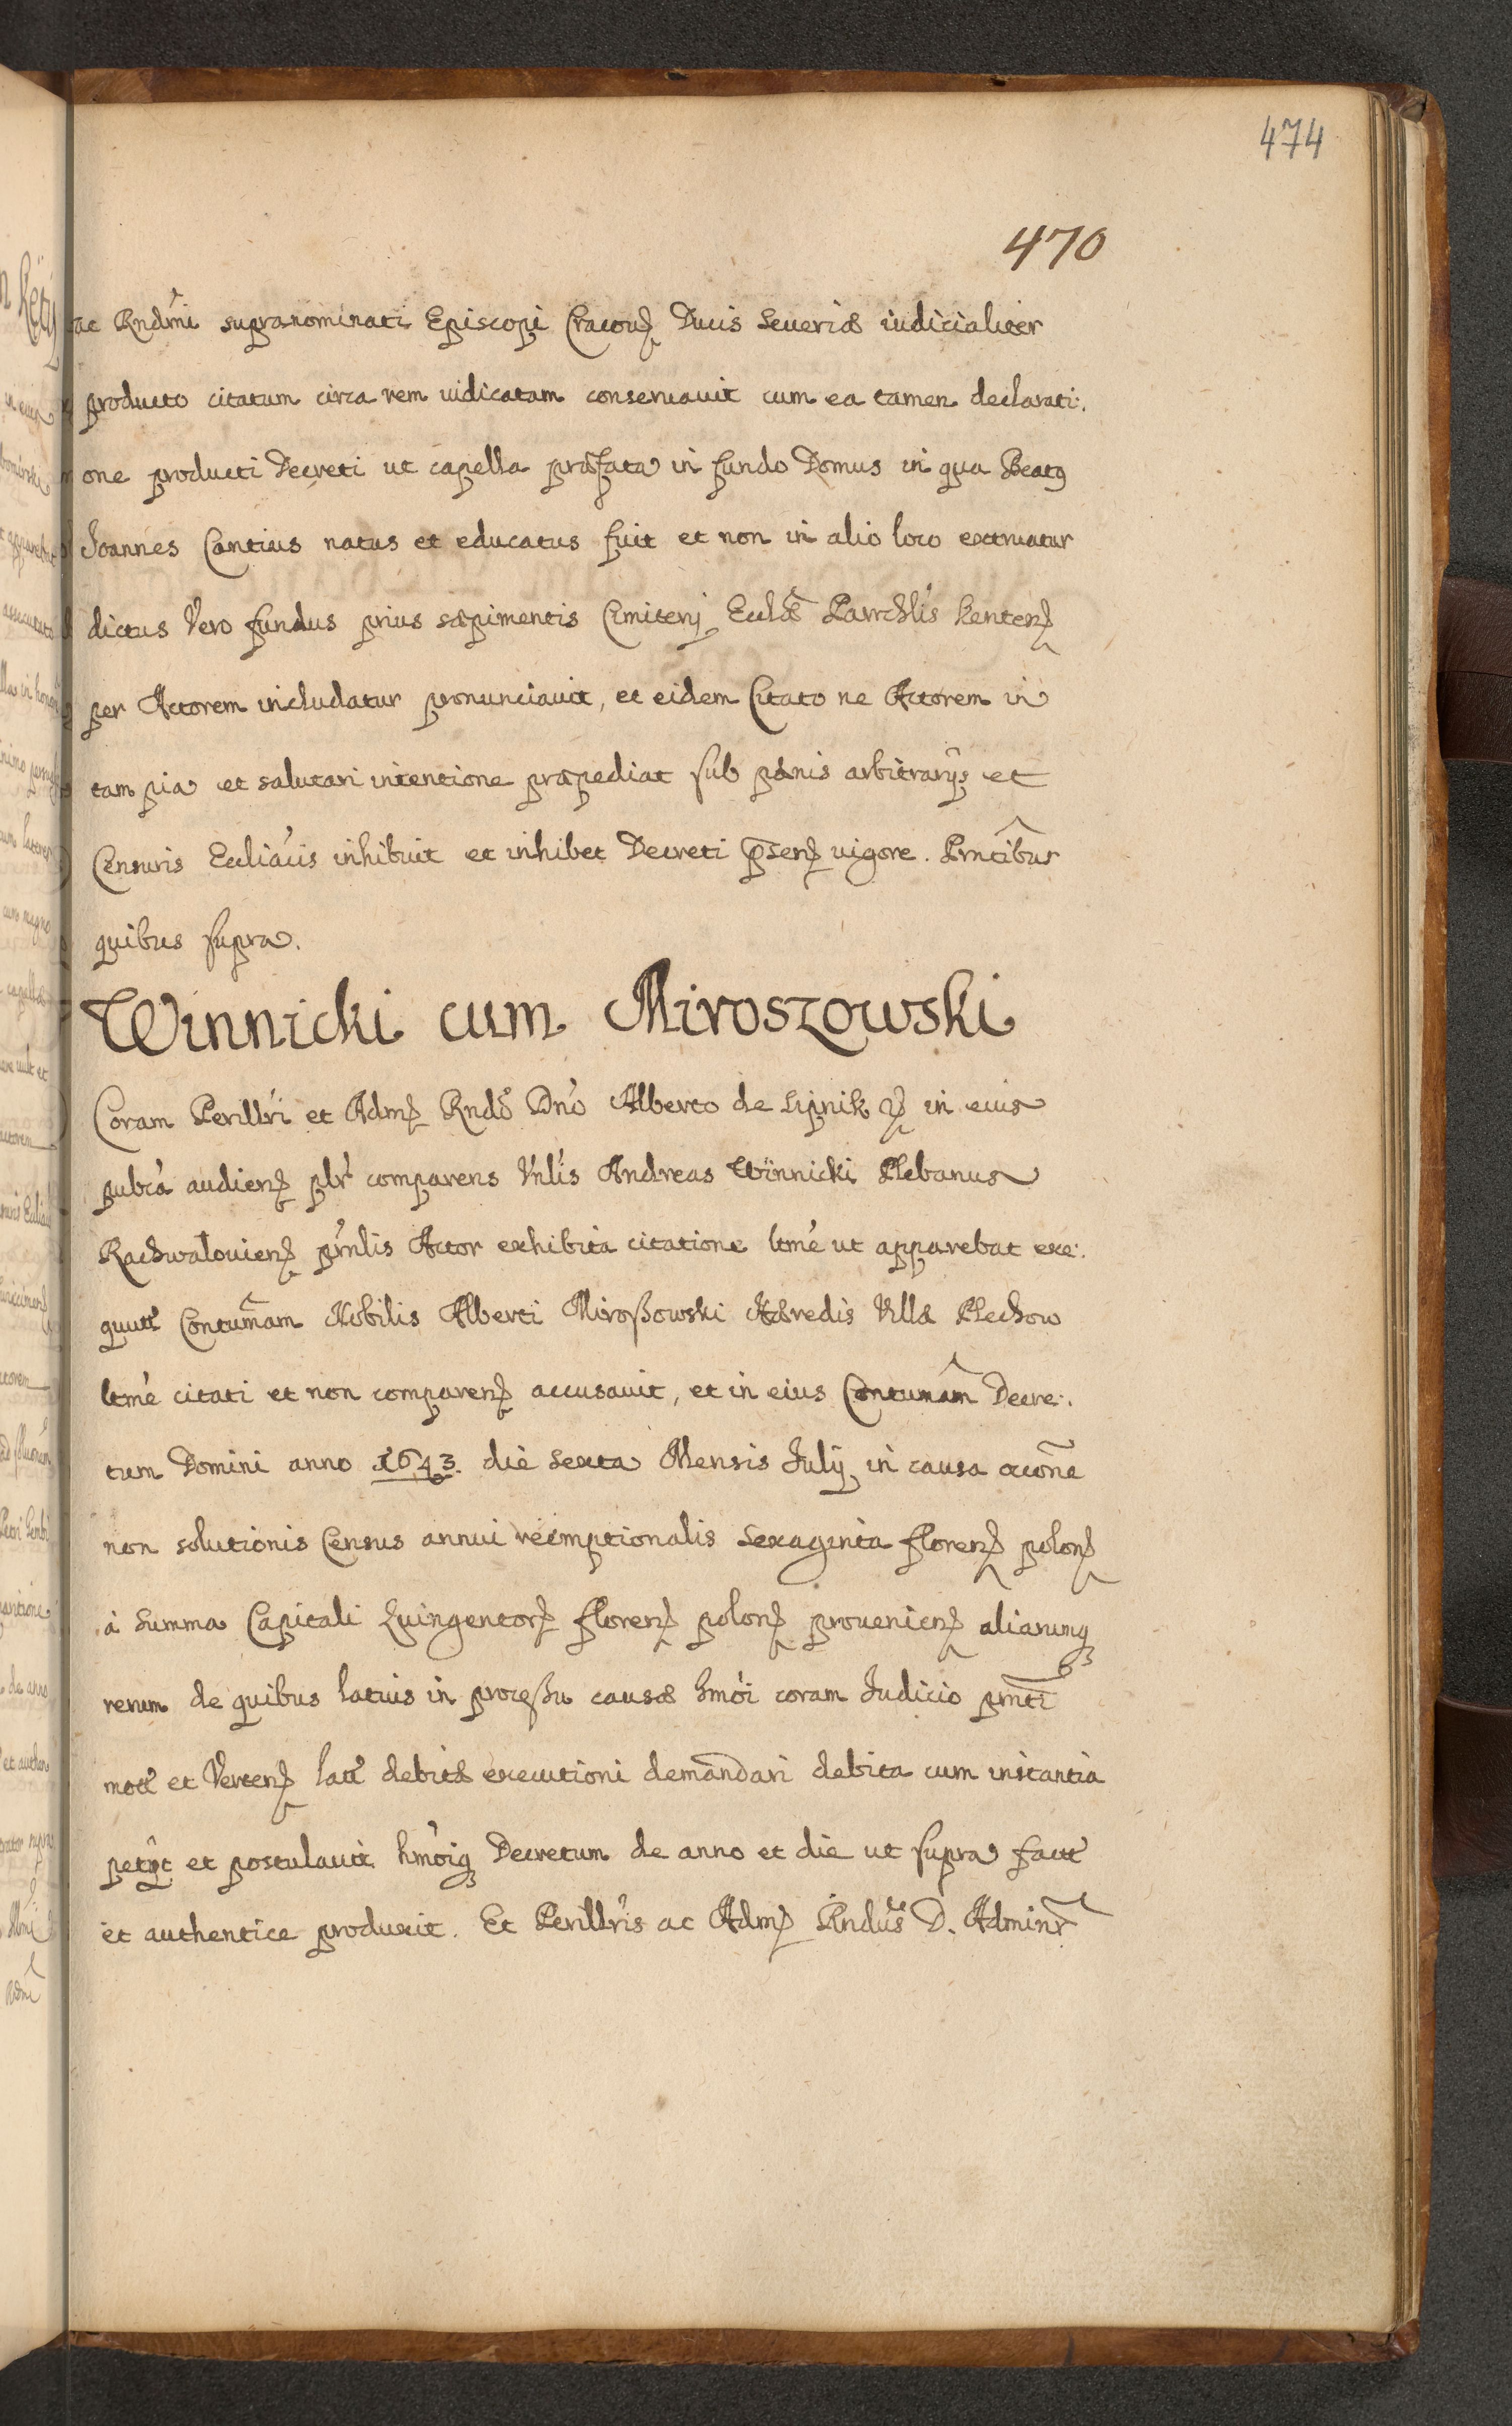 474
470
ac Rndmi supranominati Episcopi Cracou Ducis Seueriæ iudicialiter
producto citatum circa rem iudicatam conseruauit cum ea tamen declarati:
one producti Decreti ut capella præfata in fundo Domus in qua Beatq
Joannes Cantius natus et educatus fuit et non in alio loco extruatur
dictus Vero fundus prius sæpimentis Cimiterij Ecclæ Parrchlis Kenten
per Actorem includatur pronunciauit, et eidem Citato ne Actorem in
tam pia et salutari intentione præpediat sub pænis arbitrarijs et
Censuris Eccliacis inhibuit et inhibet Decreti psen uigore. Prntibus
quibus supra.
Winnicki cum Miroszowski
Coram Perillri et Adm Rndo Dno Alberto de Lipnik in eius
pubca audien plr comparens Vnlis Andreas Winnicki Plebanus
Rachwalouien prnlis Actor exhibita citatione ltme ut apparebat exe:
quut Contumam Nobilis Alberti Miroßowski Hæredis Villæ Plechow
ltme citati et non comparen accusauit, et in eius Contumam Decre:
tum Domini anno 1643. die sexta Mensis Julij in causa occone
non solutionis Census annui reemptionalis Sexaginta floren polon
à Summa Capitali Quingentor floren polon prouenien aliarumq
rerum de quibus latius in proceßu causæ hmoi coram Judicio prnti
mot et Verten lat debitæ executioni demandari debita cum instantia
petijt et postulauit hmoiq Decretum de anno et die ut supra fact
et authentice produxit. Et Perillris ac Adm Rndus D. Adminr